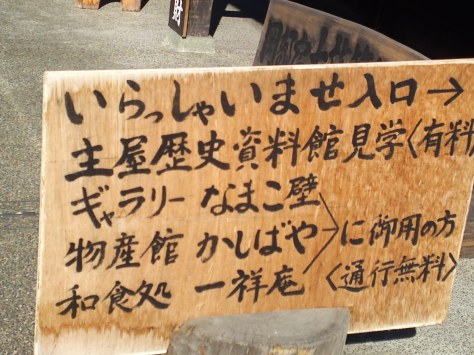 いらっしゃいませ入口→
主屋歴史資料館見学〈有料〉
ギャラリー なまこ壁
物産館 かしばや 〉に御用の方
和食処 一祥庵 〈通行無料〉